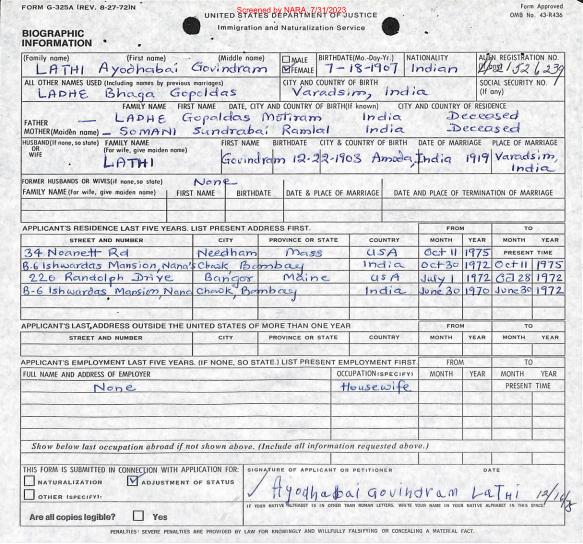 FORM G-325A (REV. 8-27-72)N
Screened by NARA, 7/31/2023
Form Approved
OMB No. 43-R436
UNITED STATES DEPARTMENT OF JUSTICE
Immigration and Naturalization Service
BIOGRAPHIC
INFORMATION
(Family name) (First name) (Middle name) MALE BIRTHDATE(Mo.-Day-Yr.) NATIONALITY ALIEN REGISTRATION NO.
LATHI Ayodhabai Govindram FEMALE 7-18-1907 Indian
ALL OTHER NAMES USED (Including names by previous marriages) CITY AND COUNTRY OF BIRTH SOCIAL SECURITY NO.
LADHE Bhaga Gopaldas Varadsim, India (If any)
FAMILY NAME FIRST NAME DATE, CITY AND COUNTRY OF BIRTH(If known) CITY AND COUNTRY OF RESIDENCE
FATHER — LADHE Gopaldas Motiram India Deceased
MOTHER(Maiden name) — SOMANI Sundrabai Ramlal India Deceased
HUSBAND(If none, so state) FAMILY NAME FIRST NAME BIRTHDATE CITY & COUNTRY OF BIRTH DATE OF MARRIAGE PLACE OF MARRIAGE
OR (For wife, give maiden name)
WIFE LATHI Govindram 12-22-1903 Amoda, India 1919 Varadsim, India
FORMER HUSBANDS OR WIVES(If none, so state) None
FAMILY NAME (For wife, give maiden name) FIRST NAME BIRTHDATE DATE & PLACE OF MARRIAGE DATE AND PLACE OF TERMINATION OF MARRIAGE
APPLICANT'S RESIDENCE LAST FIVE YEARS. LIST PRESENT ADDRESS FIRST. FROM TO
STREET AND NUMBER CITY PROVINCE OR STATE COUNTRY MONTH YEAR MONTH YEAR
34 Noanett Rd Needham Mass USA Oct 11 1975 PRESENT TIME
B-6 Ishwardas Mansion, Nana's Chowk, Bombay India Oct 30 1972 Oct 11 1975
220 Randolph Drive Bangor Maine USA July 1 1972 Oct 28 1972
B-6 Ishwardas Mansion, Nana Chowk, Bombay India June 30 1970 June 30 1972
APPLICANT'S LAST ADDRESS OUTSIDE THE UNITED STATES OF MORE THAN ONE YEAR FROM TO
STREET AND NUMBER CITY PROVINCE OR STATE COUNTRY MONTH YEAR MONTH YEAR
APPLICANT'S EMPLOYMENT LAST FIVE YEARS. (IF NONE, SO STATE.) LIST PRESENT EMPLOYMENT FIRST. FROM TO
FULL NAME AND ADDRESS OF EMPLOYER OCCUPATION (SPECIFY) MONTH YEAR MONTH YEAR
None Housewife PRESENT TIME
Show below last occupation abroad if not shown above. (Include all information requested above.)
THIS FORM IS SUBMITTED IN CONNECTION WITH APPLICATION FOR: SIGNATURE OF APPLICANT OR PETITIONER DATE
NATURALIZATION ADJUSTMENT OF STATUS Ayodhabai Govindram Lathi
OTHER (SPECIFY):
IF YOUR NATIVE ALPHABET IS IN OTHER THAN ROMAN LETTERS, WRITE YOUR NAME IN YOUR NATIVE ALPHABET IN THIS SPACE:
Are all copies legible? Yes
PENALTIES: SEVERE PENALTIES ARE PROVIDED BY LAW FOR KNOWINGLY AND WILLFULLY FALSIFYING OR CONCEALING A MATERIAL FACT.